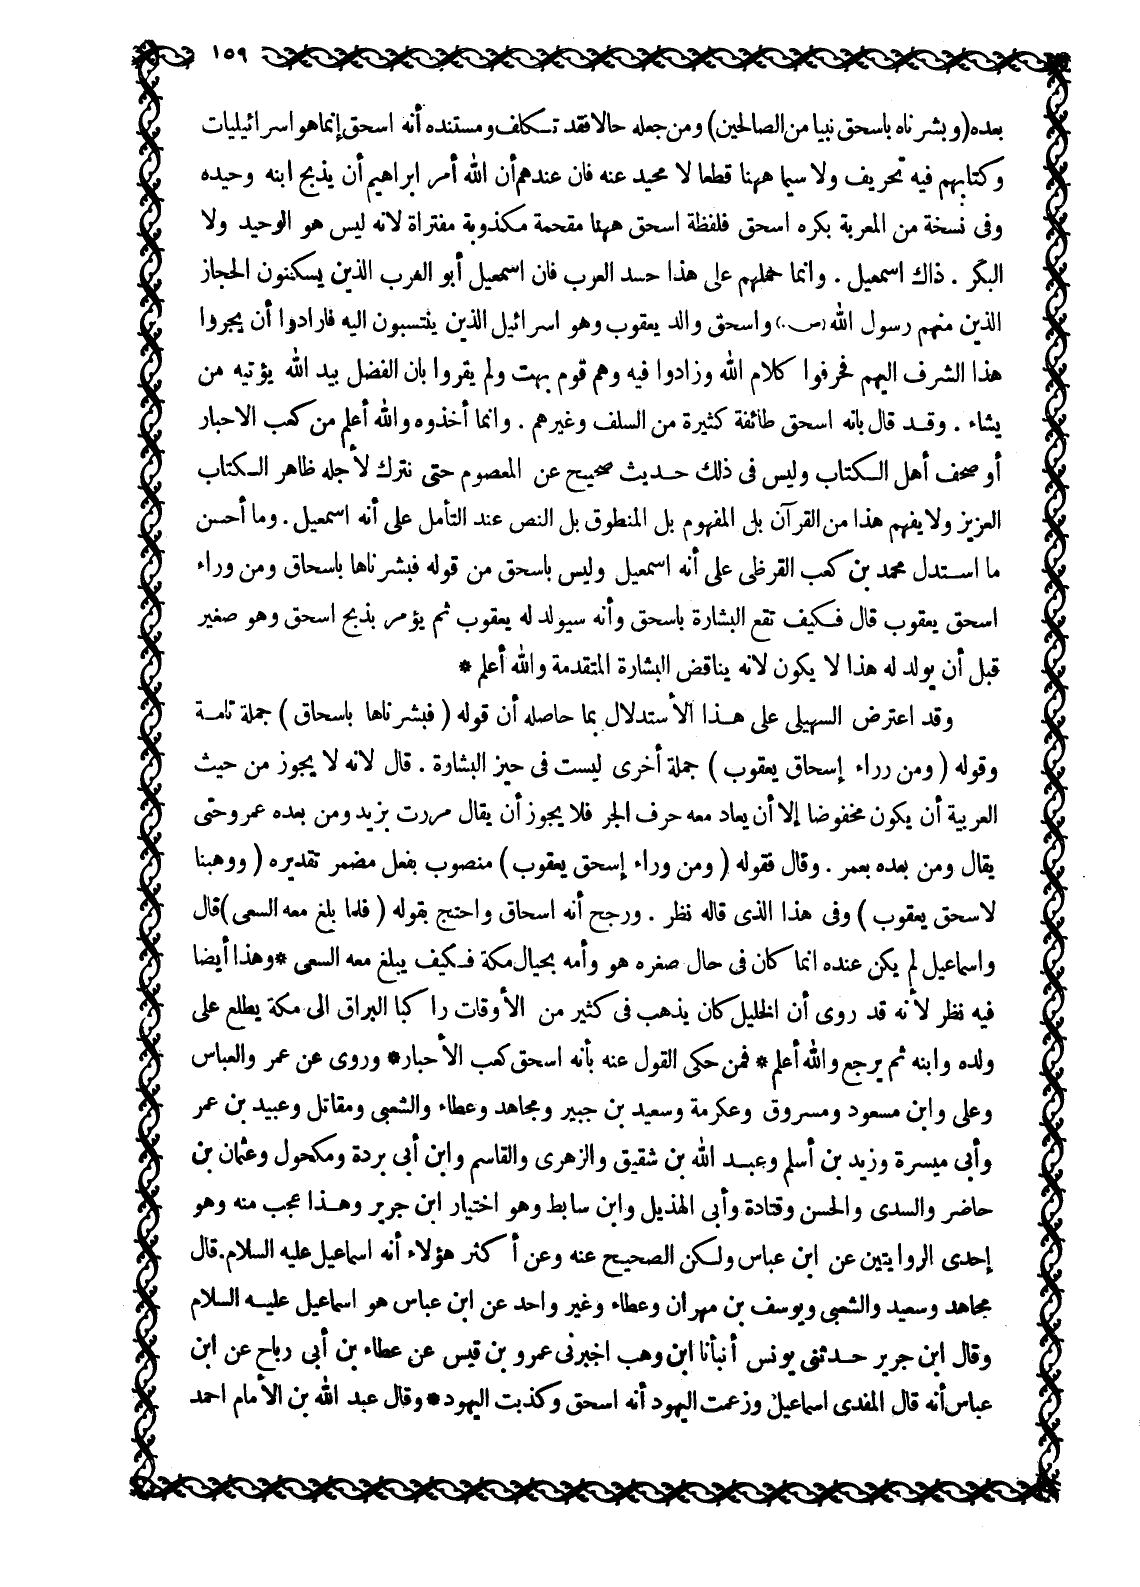 ١٥٩
بعده (وبشرناه باسحق نبيا من الصالحين) ومن جعله حالا فقد تكلف ومستنده أنه اسحق إنما هو اسرائيليات
وكتابهم فيه تحريف ولا سيما ههنا قطعا لا محيد عنه فان عندهم أن الله أمر ابراهيم أن يذبح ابنه وحيده
وفى نسخة من المعربة بكره اسحق فلفظة اسحق ههنا مقحمة مكذوبة مفتراة لانه ليس هو الوحيد ولا
البكر . ذاك اسمعيل . وانما حملهم على هذا حسد العرب فان اسمعيل أبو العرب الذين يسكنون الحجاز
الذين منهم رسول الله (ص.) واسحق والد يعقوب وهو اسرائيل الذين ينتسبون اليه فارادوا أن يجروا
هذا الشرف اليهم فحرفوا كلام الله وزادوا فيه وهم قوم بهت ولم يقروا بان الفضل بيد الله يؤتيه من
يشاء . وقد قال بانه اسحق طائفة كثيرة من السلف وغيرهم . وانما أخذوه والله أعلم من كعب الاحبار
أو صحف أهل الكتاب وليس فى ذلك حديث صحيح عن المعصوم حتى نترك لأجله ظاهر الكتاب
العزيز ولا يفهم هذا من القرآن بلى المفهوم بل المنطوق بل النص عند التأمل على أنه اسمعيل . وما أحسن
ما استدل محمد بن كعب القرظى على أنه اسمعيل وليس باسحق من قوله فبشرناها باسحاق ومن وراء
اسحق يعقوب قال فكيف تقع البشارة باسحق وأنه سيولد له يعقوب ثم يؤمر بذبح اسحق وهو صغير
قبل أن يولد له هذا لا يكون لانه يناقض البشارة المتقدمة والله أعلم *
وقد اعترض السهيلى على هذا الأستدلال بما حاصله أن قوله ( فبشرناها باسحاق ) جملة تامة
وقوله ( ومن رراء إسحاق يعقوب ) جملة أخرى ليست فى حيز البشارة . قال لانه لا يجوز من حيث
العربية أن يكون مخفوضا إلا أن يعاد معه حرف الجر فلا يجوز أن يقال مررت بزيد ومن بعده عمرو حتى
يقال ومن بعده بعمر . وقال فقوله ( ومن وراء إسحق يعقوب ) منصوب بفعل مضمر تقديره ( ووهبنا
لاسحق يعقوب ) وفى هذا الذى قاله نظر . ورجح أنه اسحاق واحتج بقوله ( فلما بلغ معه السعى ) قال
واسماعيل لم يكن عنده انما كان فى حال صغره هو وأمه بحيال مكة فكيف يبلغ معه السعى * وهذا أيضا
فيه نظر لأنه قد روى أن الخليل كان يذهب فى كثير من الأوقات راكبا البراق الى مكة يطلع على
ولده وابنه ثم يرجع والله أعلم * فمن حكى القول عنه بأنه اسحق كعب الأحبار * وروى عن عمر والعباس
وعلى وابن مسعود ومسروق وعكرمة وسعيد بن جبير ومجاهد وعطاء والشعبى ومقاتل وعبيد بن عمر
وأبى ميسرة وزيد بن أسلم وعبد الله بن شقيق والزهرى والقاسم وابن أبى بردة ومكحول وعثمان بن
حاضر والسدى والحسن وقتادة وأبى الهذيل وابن سابط وهو اختيار ابن جرير وهذا عجب منه وهو
إحدى الروايتين عن ابن عباس ولكن الصحيح عنه وعن أكثر هؤلاء أنه اسماعيل عليه السلام. قال
مجاهد وسعيد والشعبى ويوسف بن مهران وعطاء وغير واحد عن ابن عباس هو اسماعيل عليه السلام
وقال ابن جرير حدثنى يونس أنبأنا ابن وهب اخبرنى عمرو بن قيس عن عطاء بن أبى رباح عن ابن
عباس أنه قال المفدى اسماعيل وزعمت اليهود أنه اسحق وكذبت اليهود * وقال عبد الله بن الأمام احمد